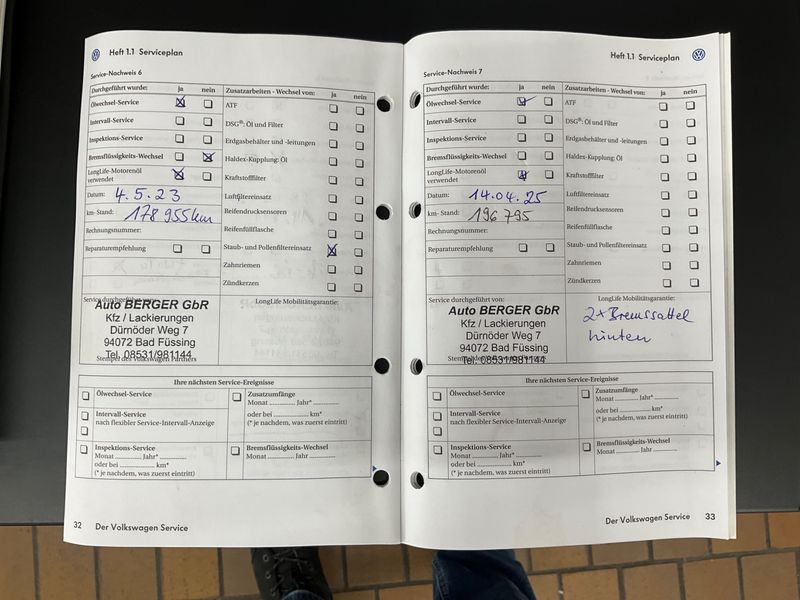 Heft 1.1 Serviceplan
Service-Nachweis 6
Durchgeführt wurde: ja nein
Ölwechsel-Service
Intervall-Service
Inspektions-Service
Bremsflüssigkeits-Wechsel
LongLife-Motorenöl
verwendet
Datum: 4.5.23
km-Stand: 178 955km
Rechnungsnummer:
Reparaturempfehlung
Zusatzarbeiten - Wechsel von: ja nein
ATF
DSG®: Öl und Filter
Erdgasbehälter und -leitungen
Haldex-Kupplung: Öl
Kraftstofffilter
Luftfiltereinsatz
Reifendrucksensoren
Reifenfüllflasche
Staub- und Pollenfiltereinsatz
Zahnriemen
Zündkerzen
Service durchgeführt von:
Auto BERGER GbR
Kfz / Lackierungen
Dürnöder Weg 7
94072 Bad Füssing
Tel. 08531/981144
Stempel des Volkswagen Partners
LongLife Mobilitätsgarantie:
Ihre nächsten Service-Ereignisse
Ölwechsel-Service
Intervall-Service
nach flexibler Service-Intervall-Anzeige
Inspektions-Service
Monat ........... Jahr* ...............
oder bei ............... km*
(* je nachdem, was zuerst eintritt)
Zusatzumfänge
Monat ........... Jahr* ...............
oder bei ............... km*
(* je nachdem, was zuerst eintritt)
Bremsflüssigkeits-Wechsel
Monat ........... Jahr ...............
32 Der Volkswagen Service
Heft 1.1 Serviceplan
Service-Nachweis 7
Durchgeführt wurde: ja nein
Ölwechsel-Service
Intervall-Service
Inspektions-Service
Bremsflüssigkeits-Wechsel
LongLife-Motorenöl
verwendet
Datum: 14.04.25
km-Stand: 196 795
Rechnungsnummer:
Reparaturempfehlung
Zusatzarbeiten - Wechsel von: ja nein
ATF
DSG®: Öl und Filter
Erdgasbehälter und -leitungen
Haldex-Kupplung: Öl
Kraftstofffilter
Luftfiltereinsatz
Reifendrucksensoren
Reifenfüllflasche
Staub- und Pollenfiltereinsatz
Zahnriemen
Zündkerzen
Service durchgeführt von:
Auto BERGER GbR
Kfz / Lackierungen
Dürnöder Weg 7
94072 Bad Füssing
Tel. 08531/981144
Stempel des Volkswagen Partners
LongLife Mobilitätsgarantie:
2x Bremssattel
hinten
Ihre nächsten Service-Ereignisse
Ölwechsel-Service
Intervall-Service
nach flexibler Service-Intervall-Anzeige
Inspektions-Service
Monat ........... Jahr* ...............
oder bei ............... km*
(* je nachdem, was zuerst eintritt)
Zusatzumfänge
Monat ........... Jahr* ...............
oder bei ............... km*
(* je nachdem, was zuerst eintritt)
Bremsflüssigkeits-Wechsel
Monat ........... Jahr ...............
Der Volkswagen Service 33